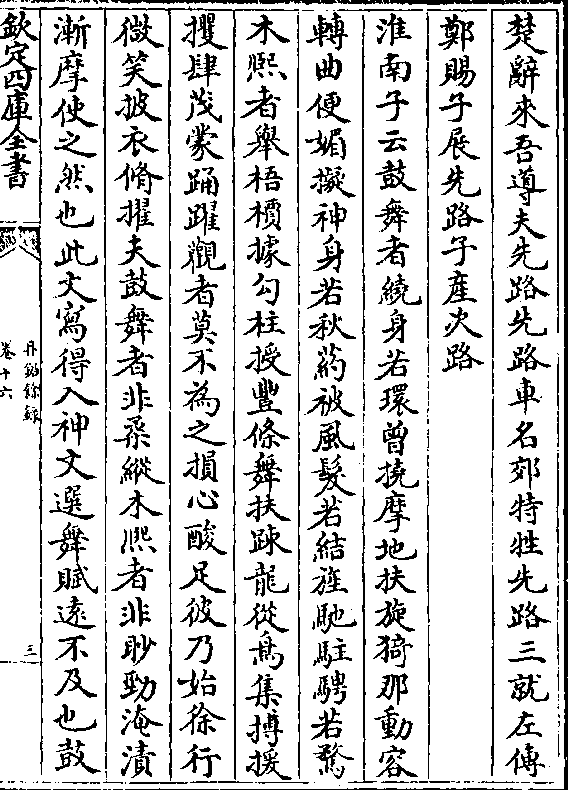 楚辭來吾導夫先路先路車名郊特牲先路三就左傳
鄭賜子展先路子産次路
淮南子云鼓舞者繞身若環曾撓摩地扶旋猗那動容
轉曲便媚擬神身若秋葯被風髮若結旌馳駐騁若驚
木熙者舉梧檟據勾柱授豐條舞扶踈龍從鳥集搏援
攫肆茂蒙踊躍觀者莫不為之損心酸足彼乃始徐行
微笑披衣脩擢夫鼓舞者非柔縱木熙者非眇勁淹漬
漸摩使之然也此文寫得入神文選舞賦遠不及也鼓
欽定四庫全書
丹鉛餘録
卷十六
三